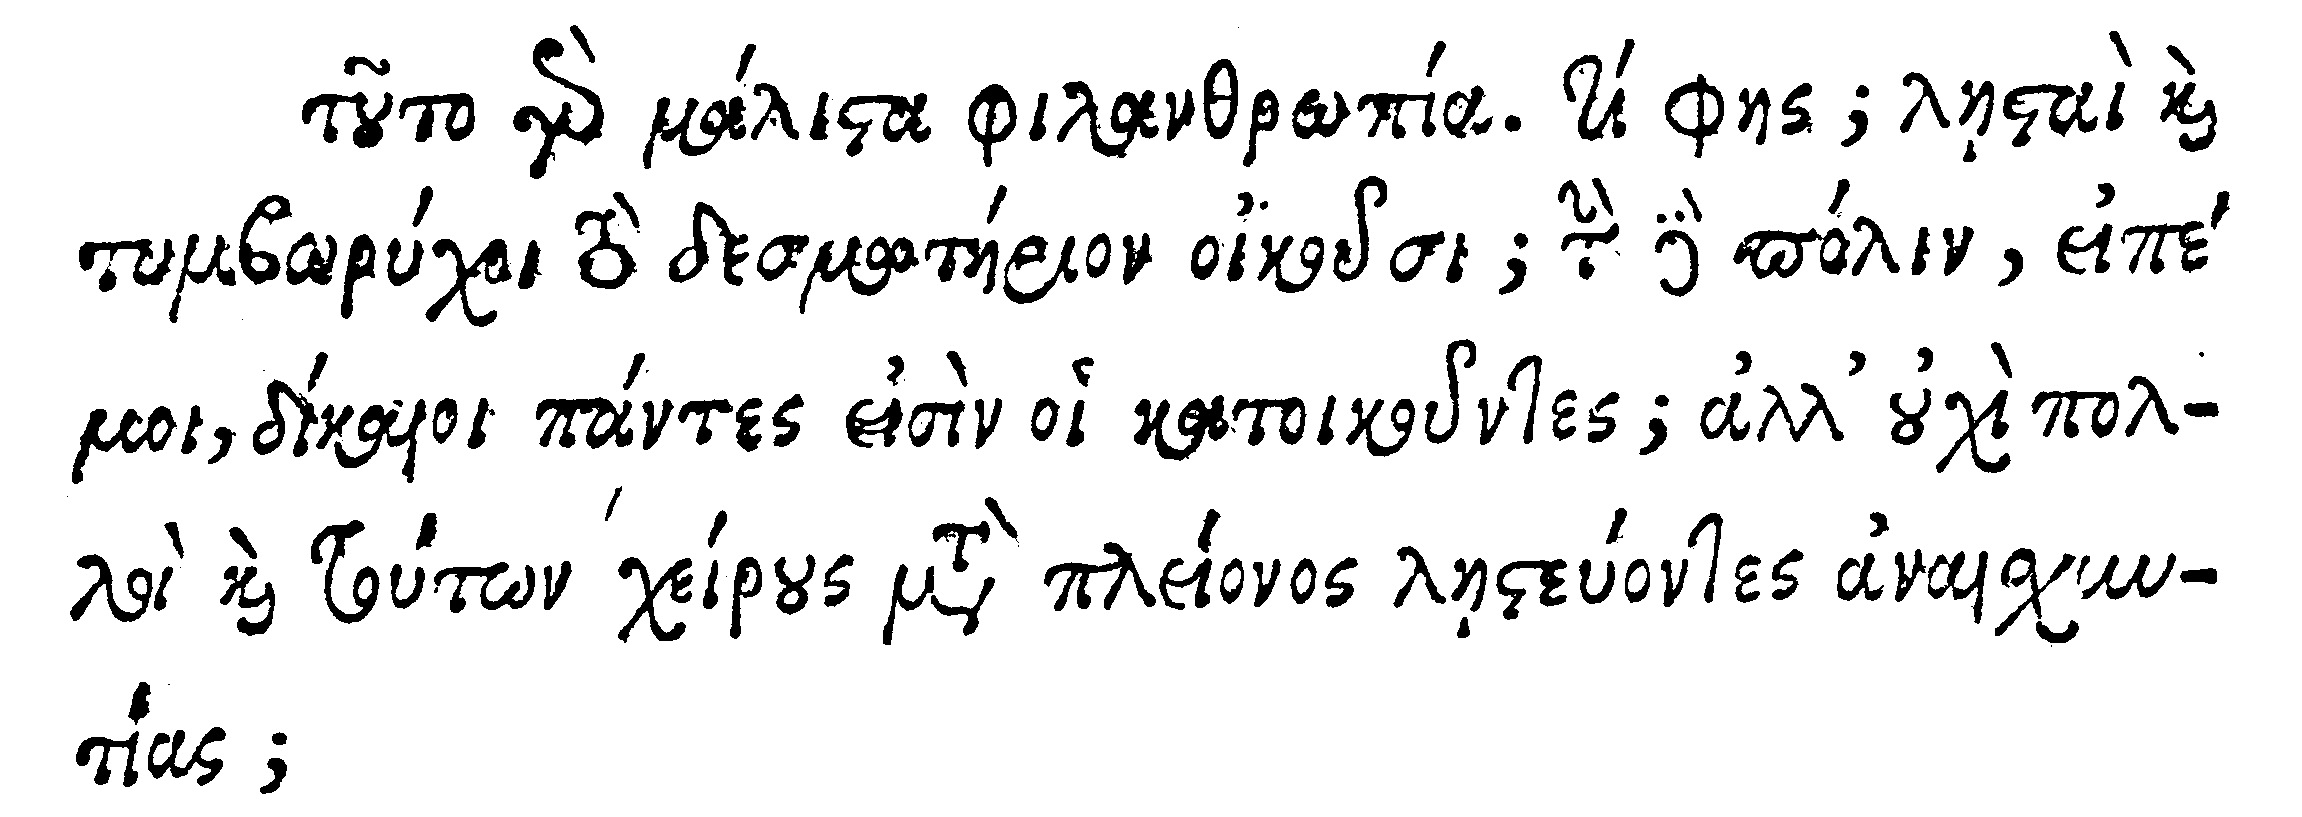 τοῦτο γὰρ μάλιστα φιλανθρωπία. τί φης; λῃσταὶ καὶ
τυμβωρύχοι τὸ δεσμωτήριον οἰκοῦσι; τὴν δὲ πόλιν, εἰπέ
μοι, δίκαιοι πάντες εἰσὶν οἱ κατοικοῦντες; ἀλλ' οὐχὶ πολ-
λοὶ καὶ τούτων χείρους μετὰ πλείονος λῃστεύοντες ἀναισχυν-
τίας;